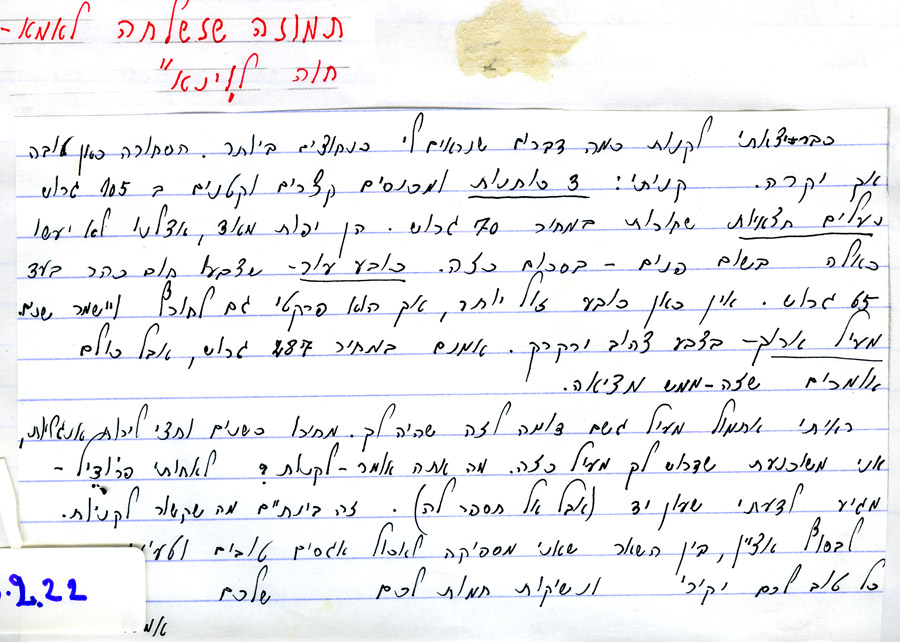 תמונה ששלחה לאמא-
חוה לוינא"
כבר יצאתי לקנות כמה דברים שנראים לי כנחוצים ביותר. הסחורה כאן טובה
אך יקרה. קניתי: 3 כותנות ומכנסים קצרים וקטנים ב 105 גרוש
נעלים חצאיות שחורות במחיר 70 גרוש. הן יפות מאוד, אצלנו לא יעשו
כאלה בשום פנים - בסכום כזה. כובע עור - שצבעו חום כהר בעד
65 גרוש. אין כאן כובע זול יותר, אך הוא פרקטי גם לחורף ויישמר שנים.
מעיל ארוך - בצבע צהוב ירקרק. אמנם במחיר 287 גרוש, אבל כולם
אומרים שזה - ממש מציאה.
ראיתי אתמול מעיל גשם דומה לזה שהיה לך. מחירו כשנים וחצי לירות אנגליות,
אני משוכנעת שדרוש לך מעיל כזה. מה אתה אומר - לקנות? לאחותי פרידיל -
מגיע לדעתי שעון יד (אבל אל תספר לה). זה בינתיים מה שקשור לקניות.
לבסוף אציין, בין השאר שאני מספיקה לאכול אגסים טובים
כל טוב לכם יקירי ונשיקות חמות לכם שלכם
9.22